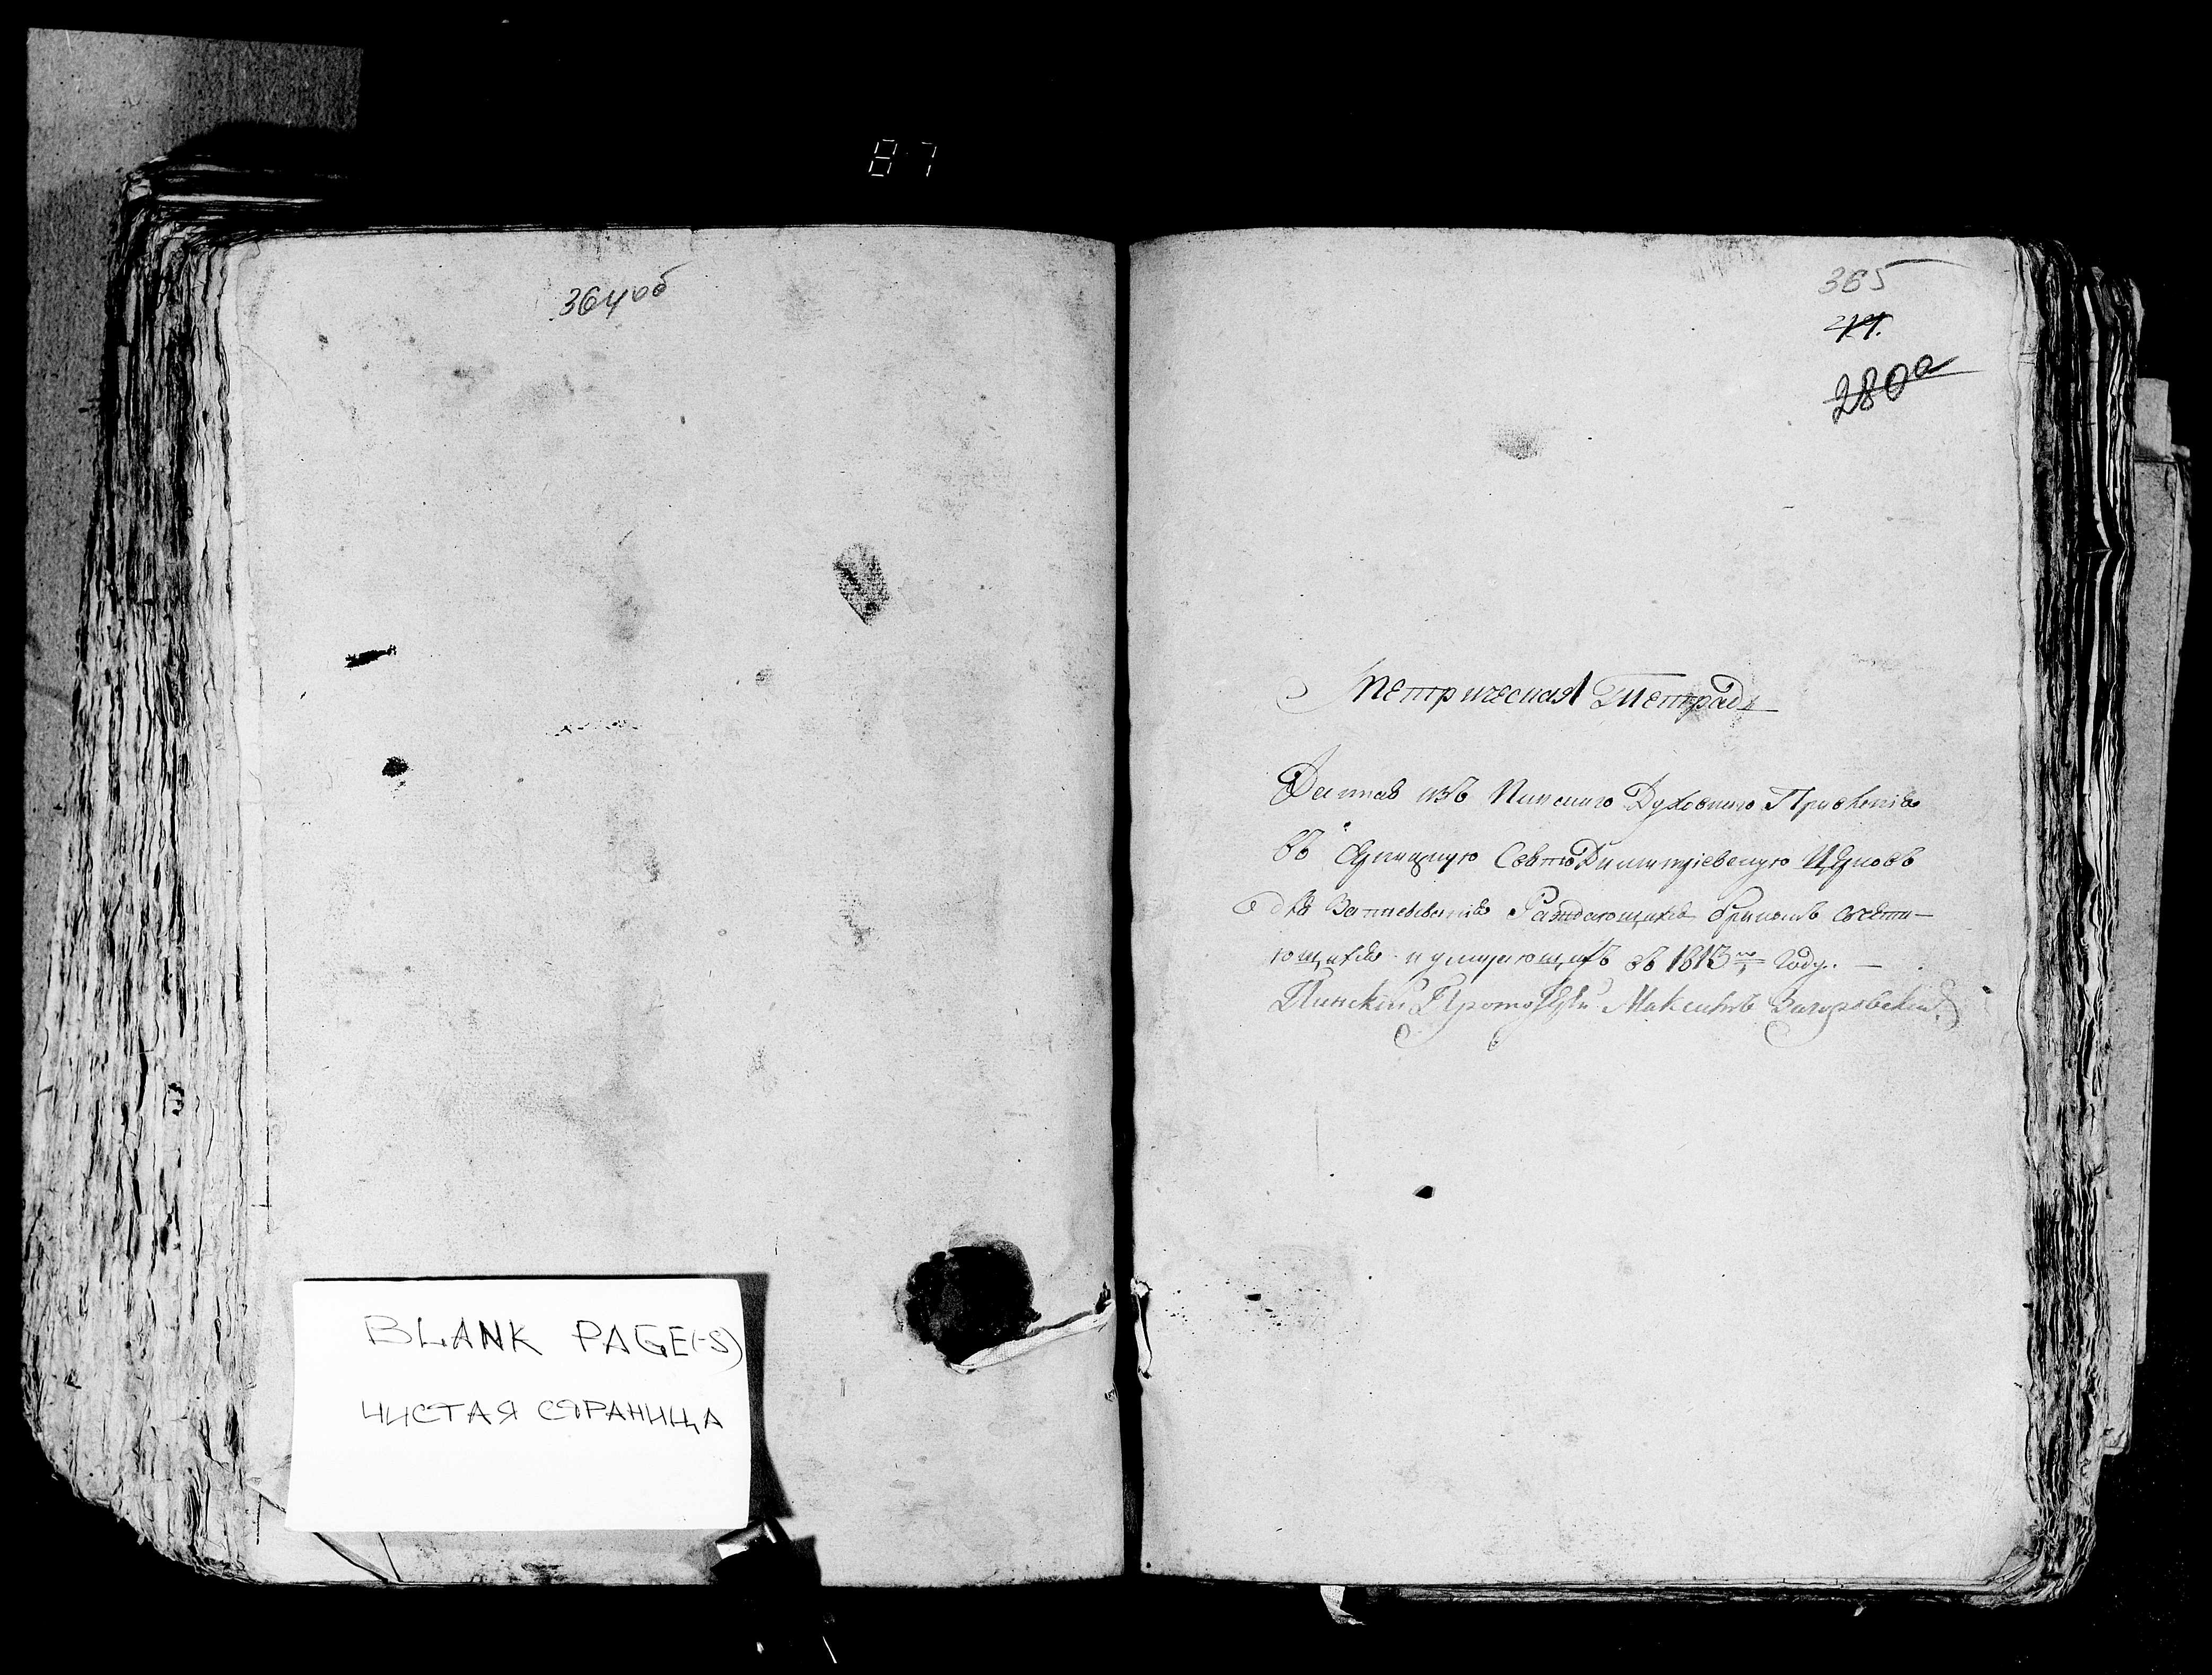 87
364 об
365
280а
Метрическая Тетрадь
Данная изъ Пинскаго Духовнаго Правленія
въ Свято Димитріевскую Церковь
для Записыванія Раждающихся бракомъ сочета-
ющихся и умирающихъ въ 1813 Году. —
Пинскій Протоіерей Максимъ Загоровскій
BLANK PAGE(-S)
ЧИСТАЯ СТРАНИЦА